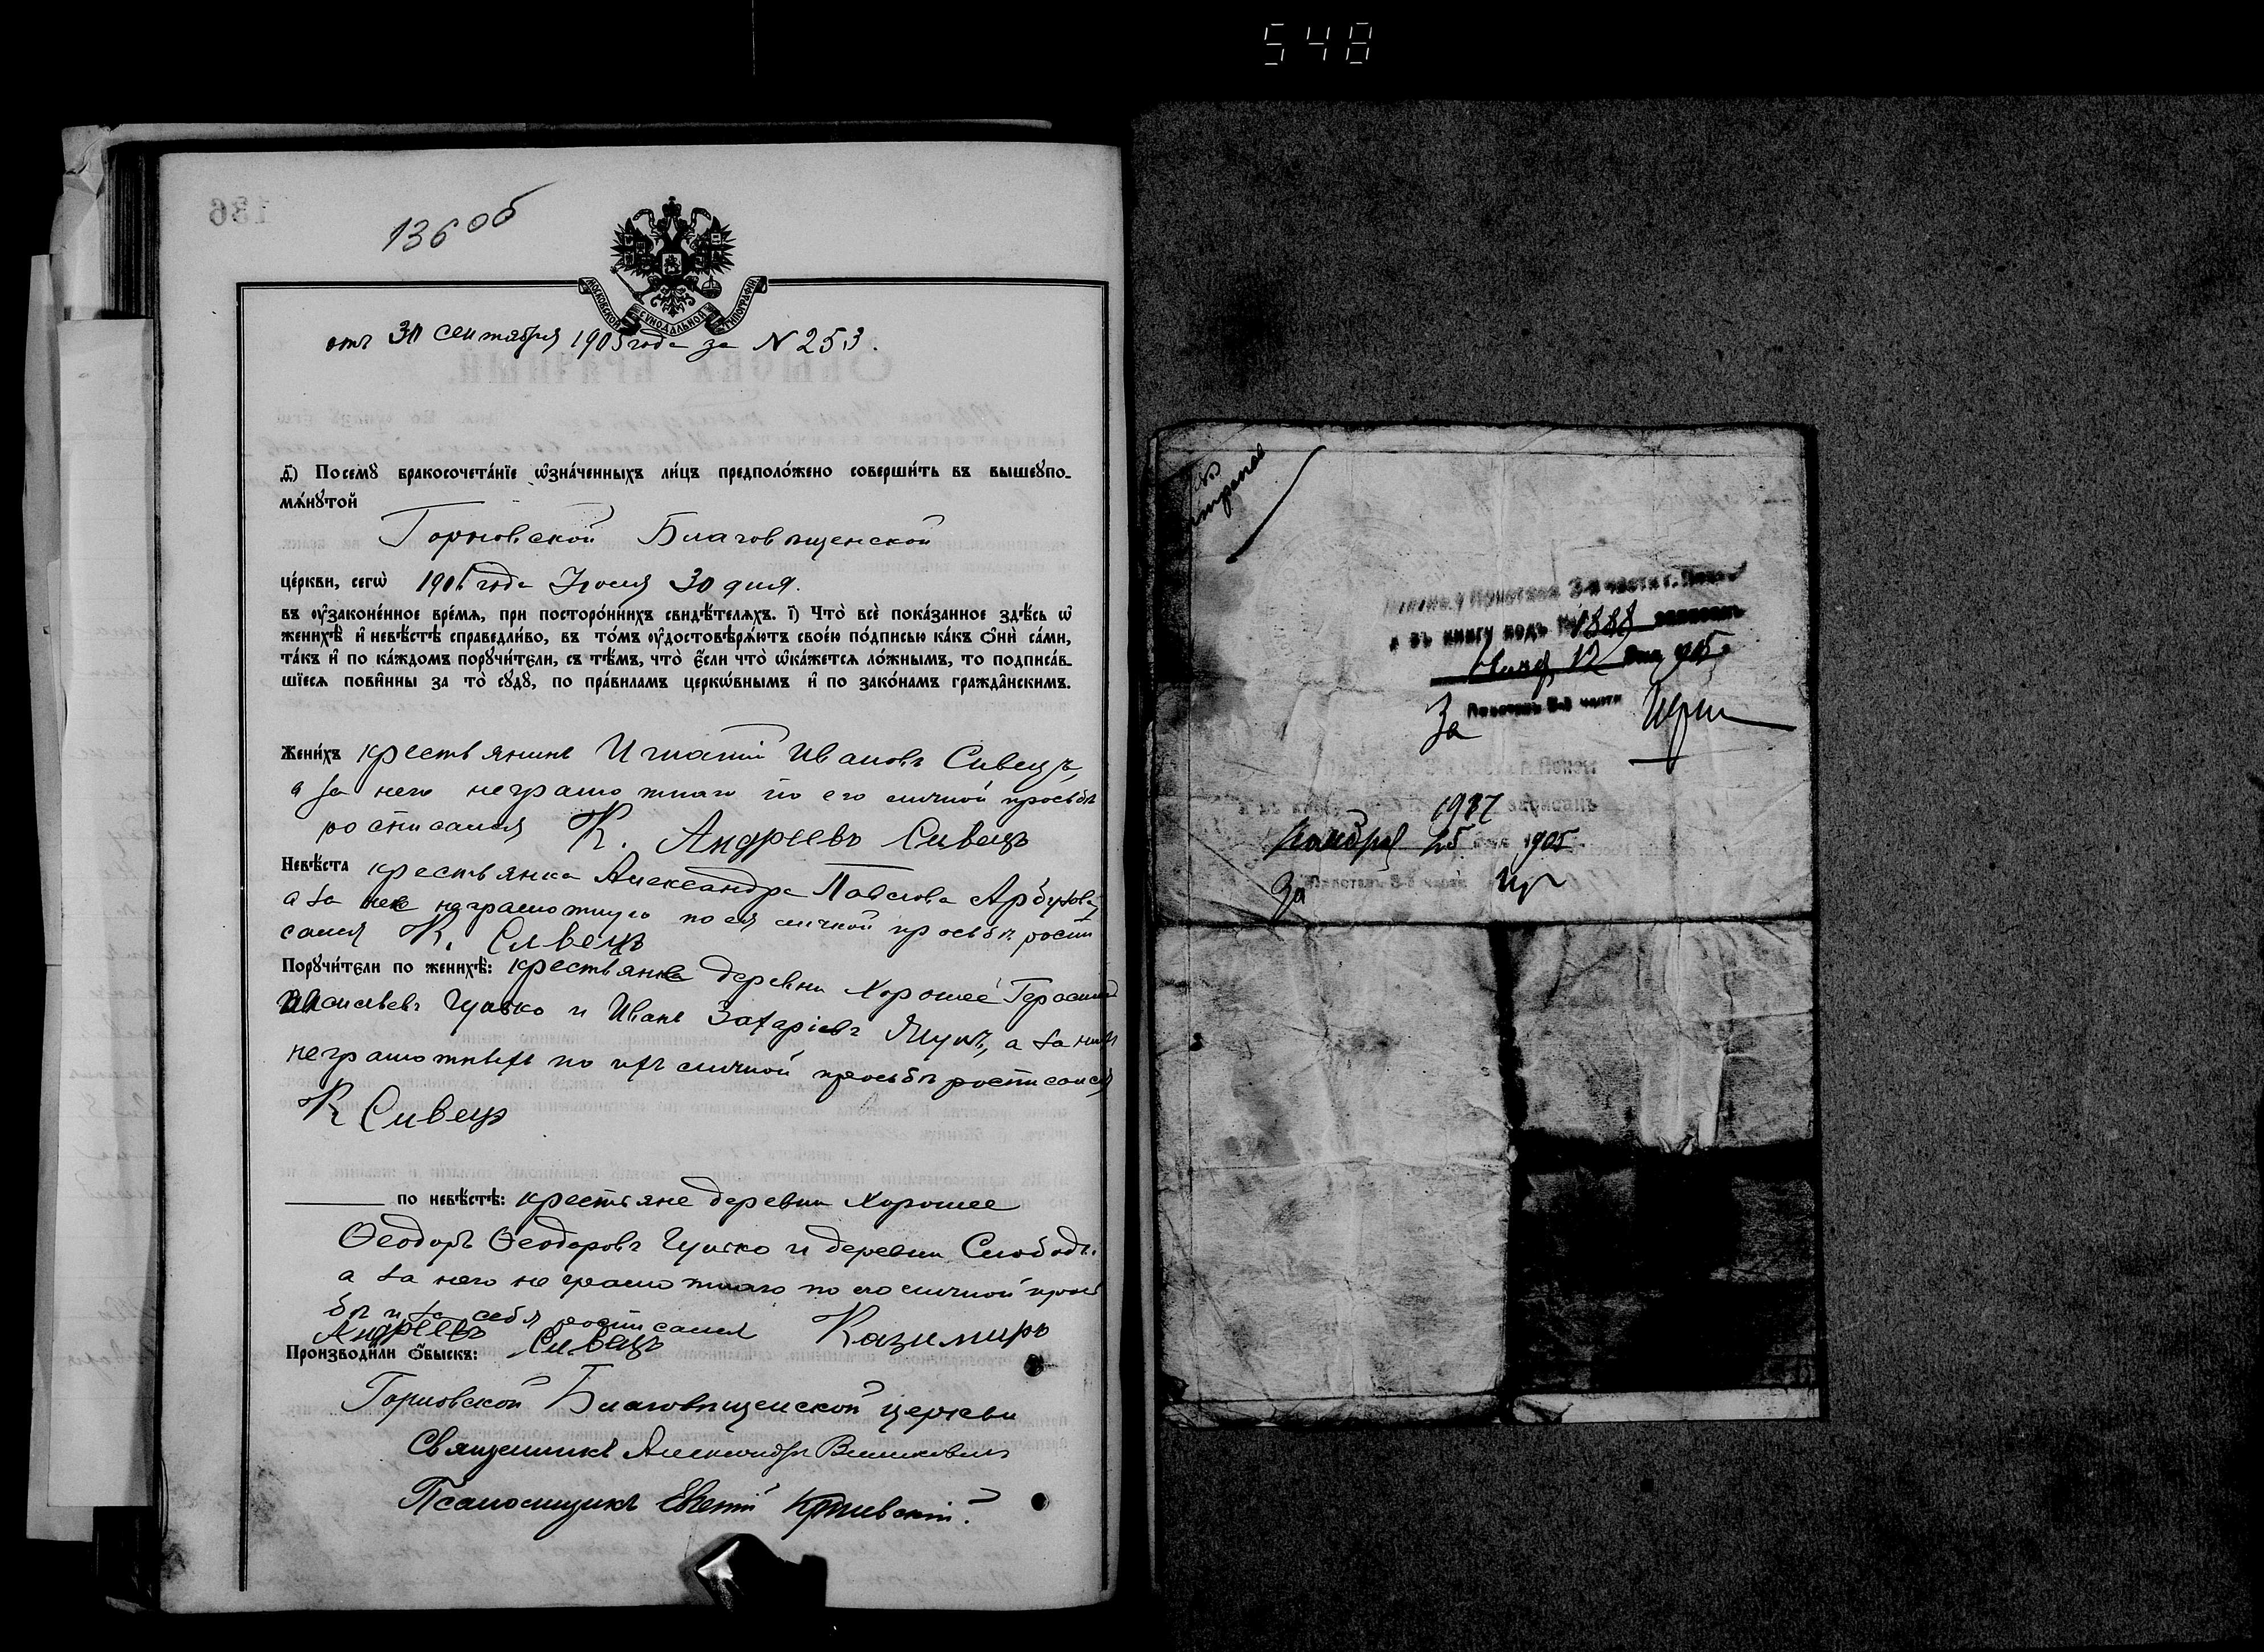 548
136
136 об
МОСКОВСКОЙ СѴНОДАЛЬНОЙ ТИПОГРАФІИ
отъ 30 сентября 1905 года за N 253.
д҃) Посемꙋ̀ бракосочета́нїе ѡ҆зна́ченныхъ ли́цъ предположено соверши́ть въ вышеꙋпо-
мѧ́нꙋтой
Горновской Благовѣщенской
це́ркви, сегѡ̀ года 30 дня.
въ ᲂу҆законе́нное вре́мѧ, при посторо́ннихъ свидѣ́телѧхъ. і҃) Что̀ всѐ пока́занное здѣ́сь ѡ҆
женихѣ̀ и҆ невѣ́стѣ справедли́во, въ то́мъ ᲂу҆достовѣрѧ́ютъ свое́ю по́дписью ка́къ ѻ҆нѝ са́ми,
та́къ и҆ по ка́ждомъ порꙋчи́тели, съ тѣ́мъ, что̀ є҆́сли что̀ ѡ҆ка́жетсѧ ло́жнымъ, то подписа́в-
шїесѧ пови́нны за то̀ сꙋдꙋ̀, по пра́виламъ церкѡ́внымъ и҆ по зако́намъ гражда́нскимъ.
Жени́хъ крестьянинъ Игнатій Ивановъ Сивецъ,
а за него неграмотнаго по его личной просьбѣ
росписался К. Андреевъ Сивецъ
Невѣ́ста крестьянка Александра Павлова
а за нее неграмотную по ея личной просьбѣ роспи
сался К. Сивецъ
Порꙋчи́тели по женихѣ̀: крестьяне деревни Хорошее Герасимъ
и Иванъ Захаріевъ а за нихъ
неграмотныхъ по ихъ личной просьбѣ росписался
К Сивецъ
по невѣ́стѣ: крестьяне деревни Хорошее
Ѳеодоръ Ѳеодоровъ и деревни
а за него неграмотнаго по его личной прось
бѣ и за себя росписался Казимиръ
Андреевъ Сивецъ
Производи́ли ѻ҆́быскъ:
Горновской Благовѣщенской церкви
Священникъ Александръ
Псаломщикъ Евгеній
3-й части г.
въ книгу подъ № 1888 записанъ
12 дня 905 г.
За Приставъ 3-й части
1987 записанъ
Ноября 25 дня 1905
За Приставъ 3-й части